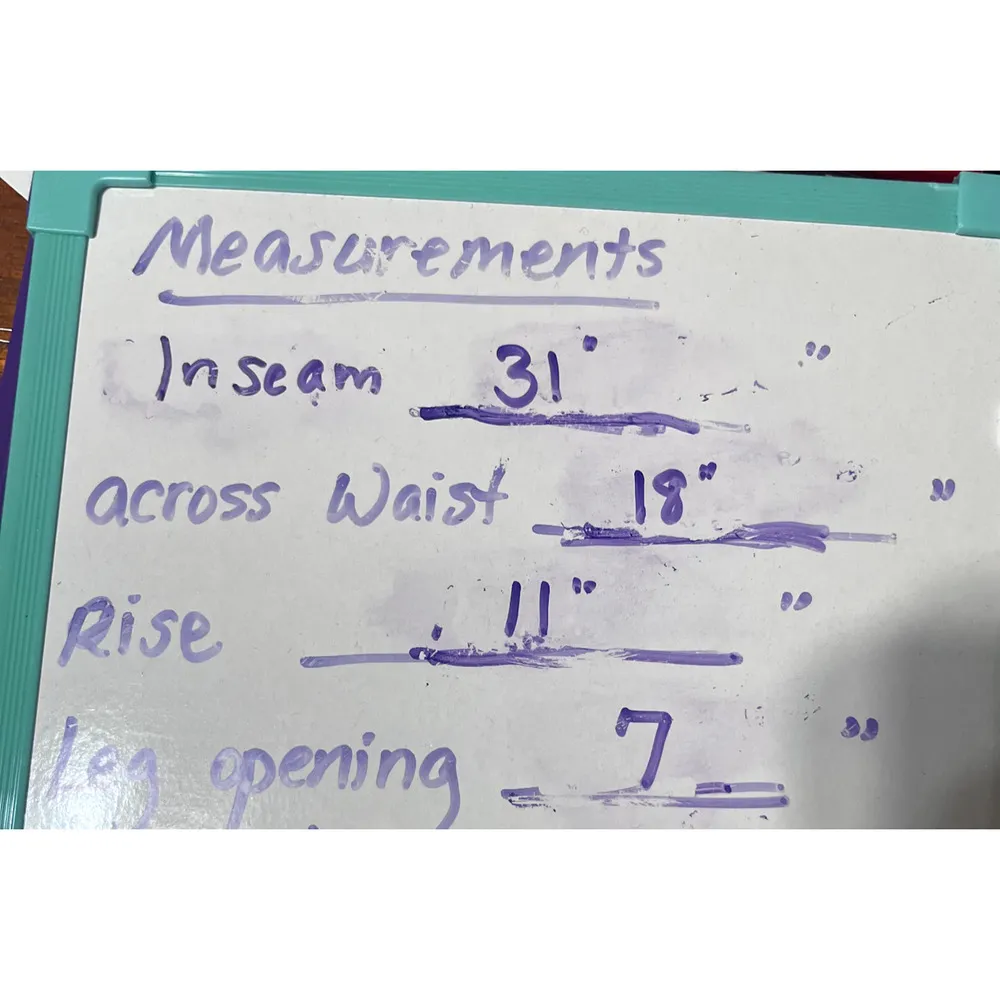 Measurements
Inseam 31" "
across Waist 18" "
Rise 11" "
Leg opening 7 "